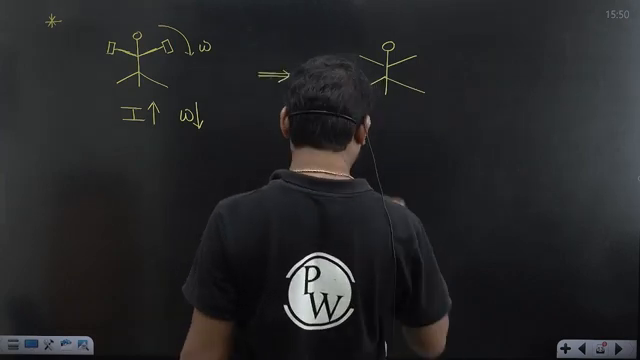 15:50
*
ω
I↑ ω↓
⇒
P
W